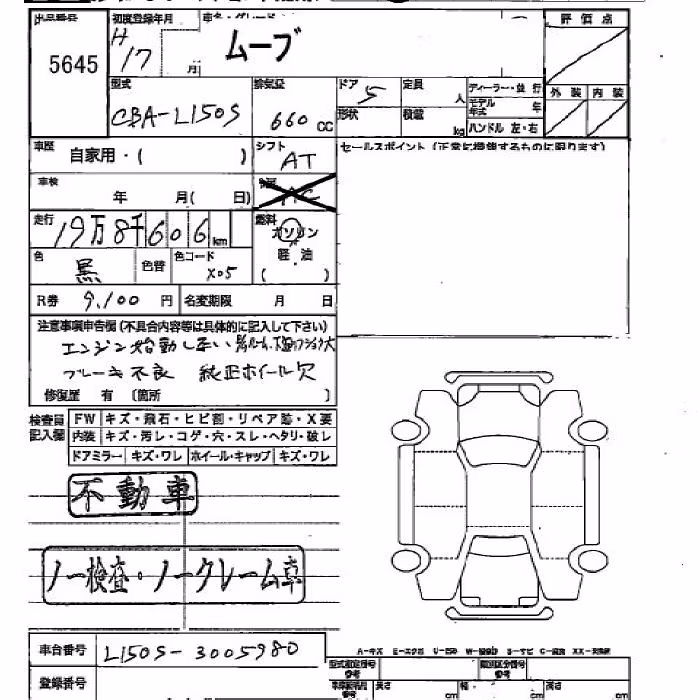 出品番号 初度登録年月 車名・グレード 評価点
5645 H17 月 ムーブ
型式 排気量 ドア 定員 ディーラー・並行 外装 内装
CBA-L150S 660cc 5 人 モデル年式 年
形状 積載 kg ハンドル 左・右
車歴 自家用・( ) シフト AT セールスポイント (正常に機能するものに限ります)
車検 年 月( 日) AC
走行 19万8千606km 燃料 ガソリン
軽油
( )
色 黒 色替 色コード X05
R券 9,100 円 名変期限 月 日
注意事項申告欄(不具合内容等は具体的に記入して下さい)
エンジン始動しない
ブレーキ不良 純正ホイール欠
修復歴 有 〔箇所 〕
検査員記入欄 FW キズ・飛石・ヒビ割・リペア跡・X要
内装 キズ・汚レ・コゲ・穴・スレ・ヘタリ・破レ
ドアミラー キズ・ワレ ホイール・キャップ キズ・ワレ
不動車
ノー検査・ノークレーム車
車台番号 L150S-3005980
登録番号
A-キズ
型式指定番号 参考 類別区分番号 参考
参考 長さ cm 幅 cm 高さ cm